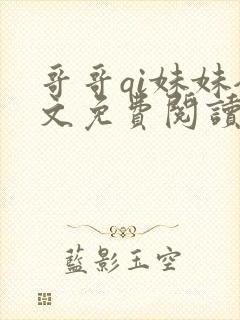 哥哥qi妹妹
文免費閱讀
藍影玉空